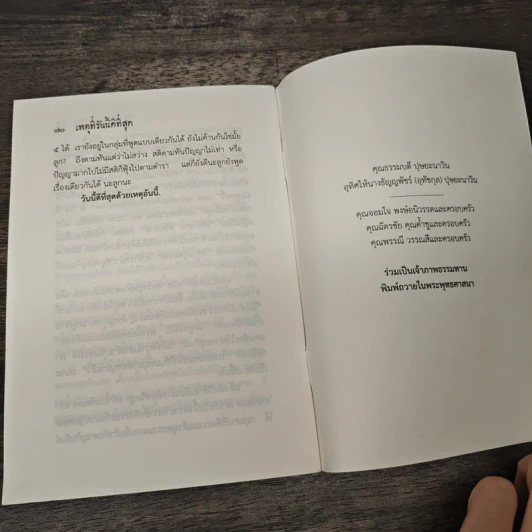 ๗๐ เหตุที่วันนี้ดีที่สุด
๕ ได้ เรายังอยู่ในกลุ่มที่พูดแบบเดียวกันได้ ยังไม่ค้านกันใช่มั้ย
ลูก? ถึงตามทันแต่ว่าไม่สว่าง สติตามทันปัญญาไม่เท่า หรือ
ปัญญามากไปไม่มีสติก็ฟุ้งไปตามตำรา แต่ก็ยังดีนะลูกยังพูด
เรื่องเดียวกันได้ นะลูกนะ
วันนี้ดีที่สุดด้วยเหตุฉันนี้.
คุณธรรมบดี ปุษยะนาวิน
อุทิศให้นางธัญญพัชร์ (อุทัชกุล) ปุษยะนาวิน
คุณจอมใจ พงษ์อนิวรรตและครอบครัว
คุณฉัตรชัย คุณค้ำชูและครอบครัว
คุณพรรณี วรรณสีและครอบครัว
ร่วมเป็นเจ้าภาพธรรมทาน
พิมพ์ถวายในพระพุทธศาสนา